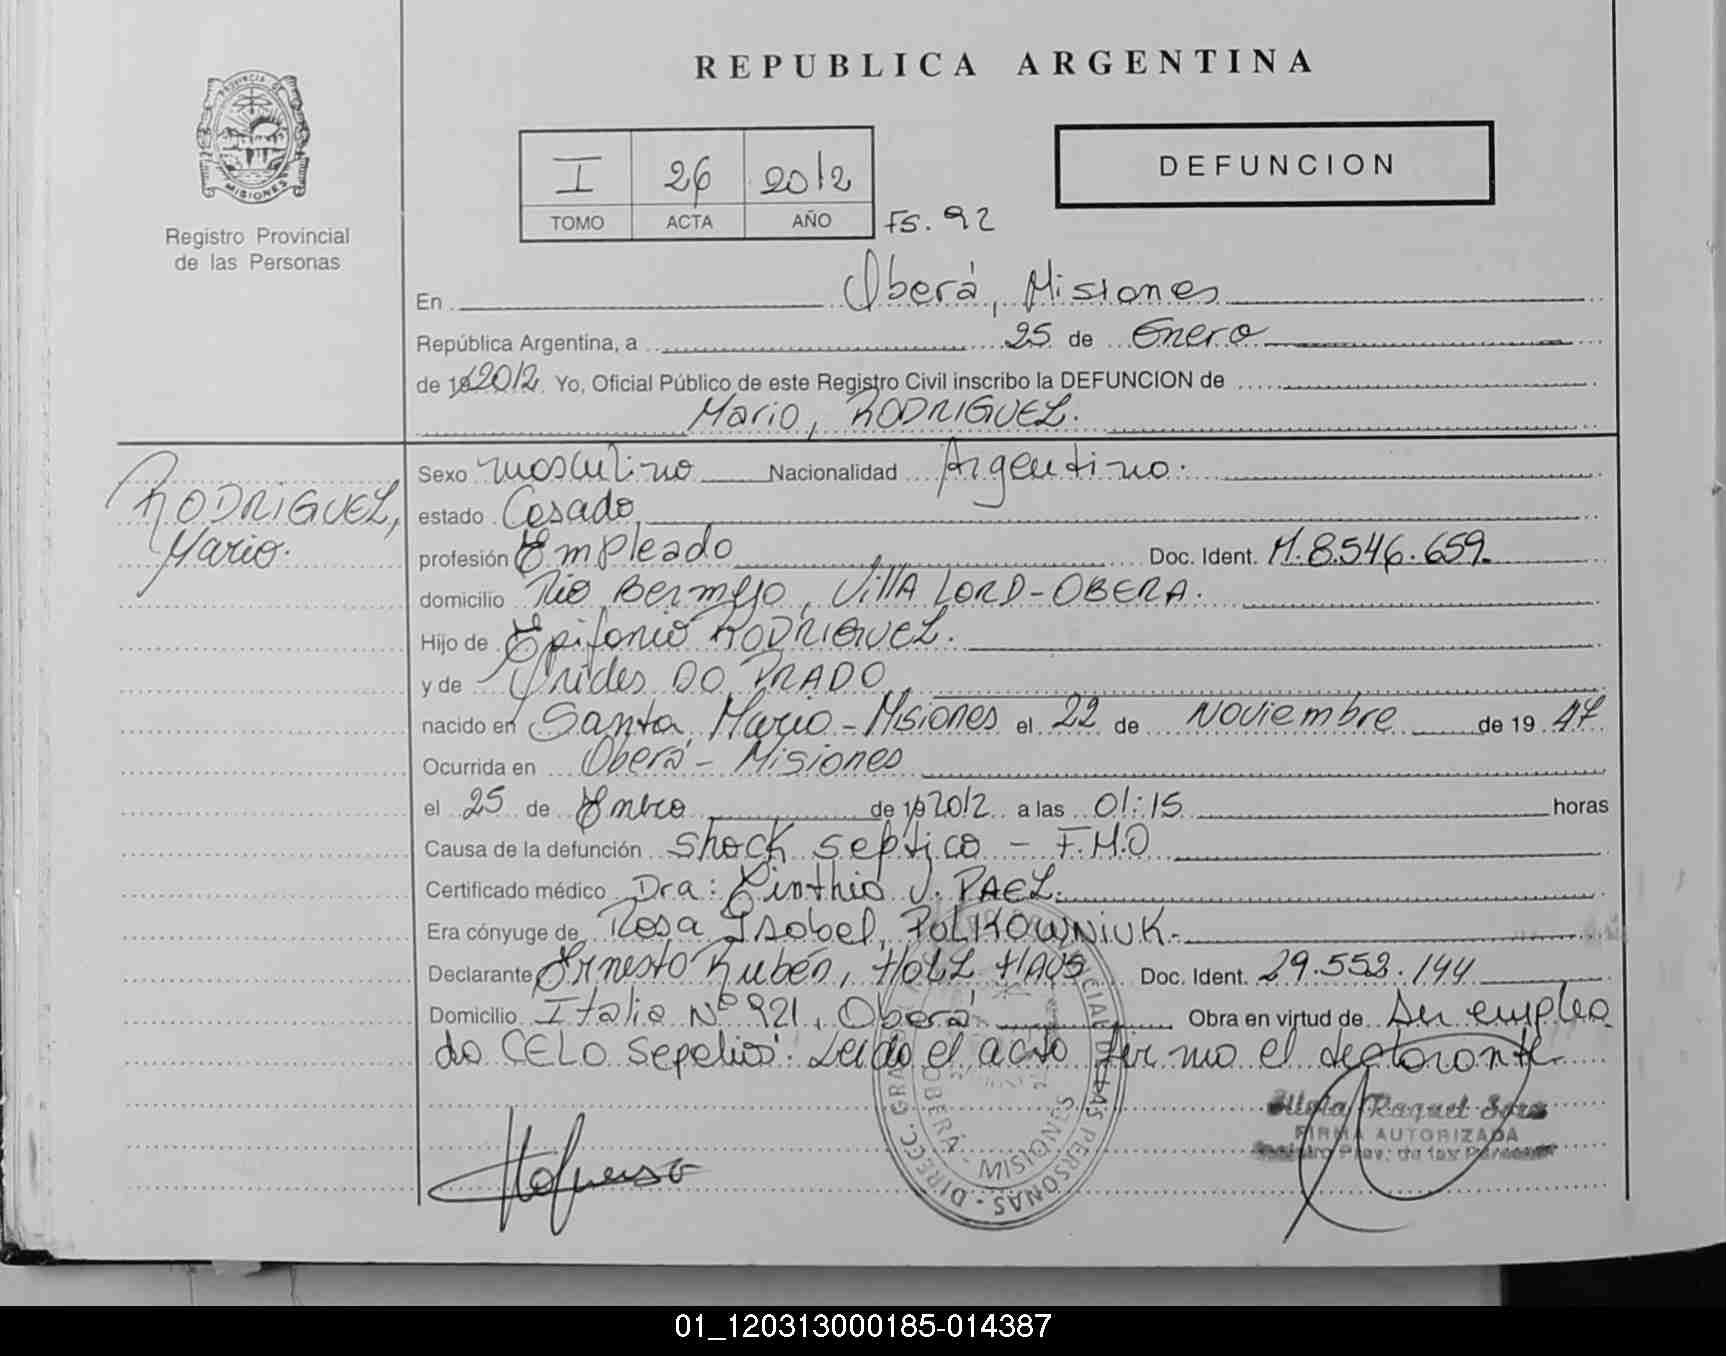 REPUBLICA ARGENTINA
PROVINCIA DE
MISIONES
Registro Provincial
de las Personas
I 26 2012
TOMO ACTA AÑO
FS. 92
DEFUNCION
En Oberá, Misiones
República Argentina, a 25 de Enero
de 19 2012. Yo, Oficial Público de este Registro Civil inscribo la DEFUNCION de
Mario, RODRIGUEZ.
RODRIGUEZ,
Mario.
Sexo masculino Nacionalidad Argentino.
estado Casado
profesión Empleado Doc. Ident. M. 8.546.659.
domicilio Rio Bermejo, Villa LORD - OBERA.
Hijo de Epifanio RODRIGUEZ.
y de DO PRADO
nacido en Santa Maria - Misiones el 22 de Noviembre de 19 47
Ocurrida en Oberá - Misiones
el 25 de Enero de 19 2012 a las 01:15 horas
Causa de la defunción shock septico - F.M.O
Certificado médico Dra: Cinthia J. PAEZ.
Era cónyuge de Rosa Isabel, POLIKOWNIUK.-
Declarante Ernesto Rubén, HOLZ HAUS Doc. Ident. 29.553.144
Domicilio Italia Nº 921, Oberá Obra en virtud de ser emplea
do CELO Sepelios. Leida el acta firma el declarante.
Raquel
FIRMA AUTORIZADA
Registro Prov. de las Personas
DIRECC. GRAL. PERSONAS
OBERÁ - MISIONES
01_120313000185-014387